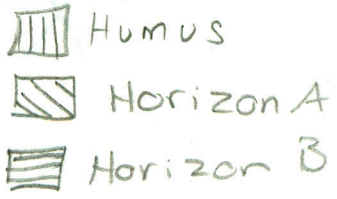 Humus
Horizon A
Horizon B